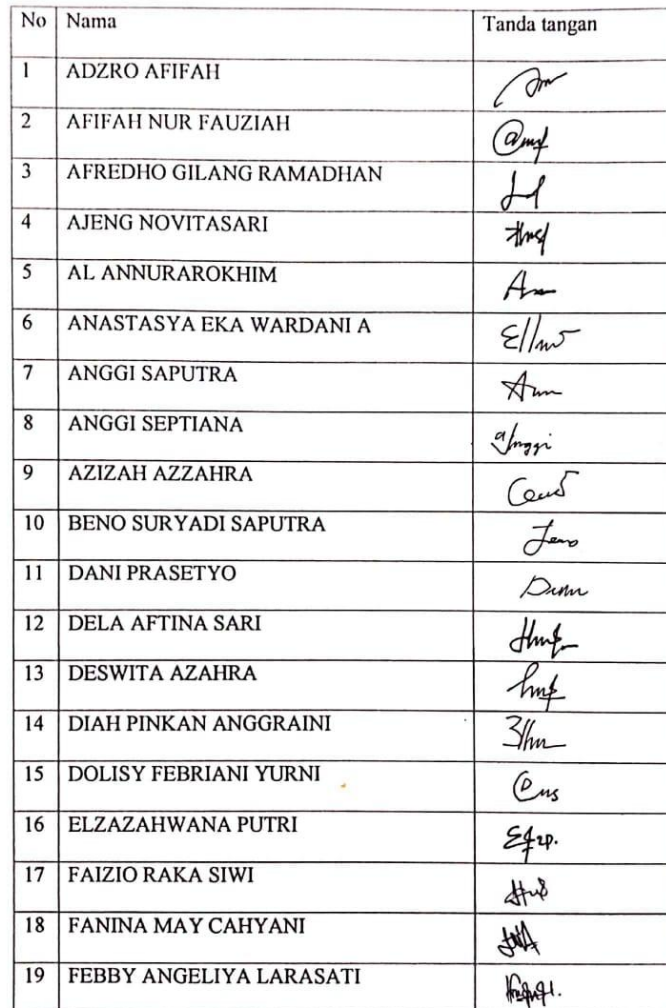 No Nama Tanda tangan
1 ADZRO AFIFAH
2 AFIFAH NUR FAUZIAH
3 AFREDHO GILANG RAMADHAN
4 AJENG NOVITASARI
5 AL ANNURAROKHIM
6 ANASTASYA EKA WARDANI A
7 ANGGI SAPUTRA
8 ANGGI SEPTIANA
9 AZIZAH AZZAHRA
10 BENO SURYADI SAPUTRA
11 DANI PRASETYO
12 DELA AFTINA SARI
13 DESWITA AZAHRA
14 DIAH PINKAN ANGGRAINI
15 DOLISY FEBRIANI YURNI
16 ELZAZAHWANA PUTRI
17 FAIZIO RAKA SIWI
18 FANINA MAY CAHYANI
19 FEBBY ANGELIYA LARASATI